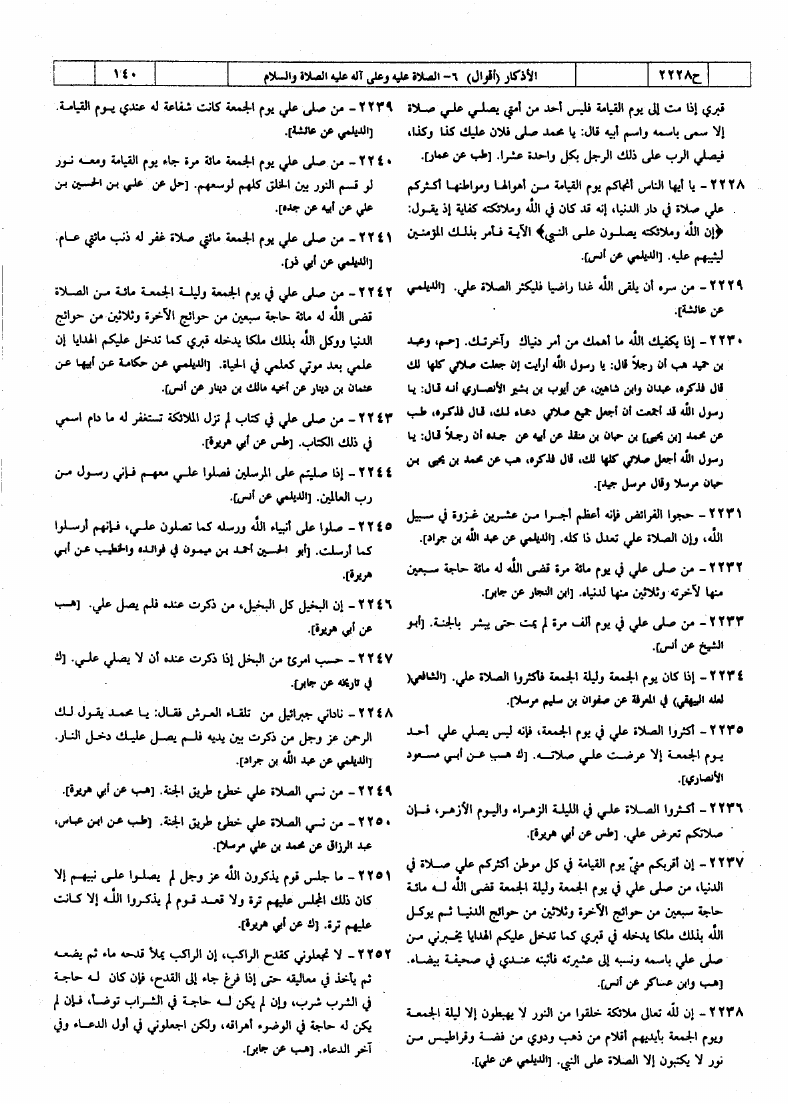 ح٢٢٢٨
الأذكار (أقوال) ٦- الصلاة عليه وعلى آله عليه الصلاة والسلام
١٤٠
قبري إذا مت إلى يوم القيامة فليس أحد من أمتي يصلي علي صلاة
إلا سمى باسمه واسم أبيه قال: يا محمد صلى فلان عليك كذا وكذا،
فيصلي الرب على ذلك الرجل بكل واحدة عشرا. [طب عن عمار].
٢٢٢٨- يا أيها الناس أنجاكم يوم القيامة من أهوالها ومواطنها أكثركم
علي صلاة في دار الدنيا، إنه قد كان في الله وملائكته كفاية إذ يقول:
﴿إن الله وملائكته يصلون على النبي﴾ الآية فأمر بذلك المؤمنين
ليثيبهم عليه. [الديلمي عن أنس].
٢٢٢٩- من سره أن يلقى الله غدا راضيا فليكثر الصلاة علي. [الديلمي
عن عائشة].
٢٢٣٠- إذا يكفيك الله ما أهمك من أمر دنياك وآخرتك. [حم، وعبد
بن حميد هب أن رجلاً قال: يا رسول الله أرأيت إن جعلت صلاتي كلها لك
قال فذكره، عبدان وابن شاهين، عن أيوب بن بشير الأنصاري أنه قال: يا
رسول الله قد أجمعت أن أجعل جميع صلاتي دعاء لك، قال فذكره، طب
عن محمد [بن يحيى] بن حبان بن منقذ عن أبيه عن جده أن رجلاً قال: يا
رسول الله أجعل صلاتي كلها لك، قال فذكره، هب عن محمد بن يحيى بن
حبان مرسلا وقال مرسل جيد].
٢٢٣١- حجوا الفرائض فإنه أعظم أجرا من عشرين غزوة في سبيل
الله، وإن الصلاة علي تعدل ذا كله. [الديلمي عن عبد الله بن جراد].
٢٢٣٢- من صلى علي في يوم مائة مرة قضى الله له مائة حاجة سبعين
منها لآخرته وثلاثين منها لدنياه. [ابن النجار عن جابر].
٢٢٣٣- من صلى علي في يوم ألف مرة لم يمت حتى يبشر بالجنة. [أبو
الشيخ عن أنس].
٢٢٣٤- إذا كان يوم الجمعة وليلة الجمعة فأكثروا الصلاة علي. [الشافعي(
لعله البيهقي) في المعرفة عن صفوان بن سليم مرسلا].
٢٢٣٥- أكثروا الصلاة علي في يوم الجمعة، فإنه ليس يصلي علي أحد
يوم الجمعة إلا عرضت علي صلاته. [ك هب عن أبي مسعود
الأنصاري].
٢٢٣٦- أكثروا الصلاة علي في الليلة الزهراء واليوم الأزهر، فإن
صلاتكم تعرض علي. [طس عن أبي هريرة].
٢٢٣٧- إن أقربكم منيّ يوم القيامة في كل موطن أكثركم علي صلاة في
الدنيا، من صلى علي في يوم الجمعة وليلة الجمعة قضى الله له مائة
حاجة سبعين من حوائج الآخرة وثلاثين من حوائج الدنيا ثم يوكل
الله بذلك ملكا يدخله في قبري كما تدخل عليكم الهدايا يخبرني من
صلى علي باسمه ونسبه إلى عشيرته فأثبته عندي في صحيفة بيضاء.
[هب وابن عساكر عن أنس].
٢٢٣٨- إن لله تعالى ملائكة خلقوا من النور لا يهبطون إلا ليلة الجمعة
ويوم الجمعة بأيديهم أقلام من ذهب ودوي من فضة وقراطيس من
نور لا يكتبون إلا الصلاة على النبي. [الديلمي عن علي].
٢٢٣٩- من صلى علي يوم الجمعة كانت شفاعة له عندي يوم القيامة.
[الديلمي عن عائشة].
٢٢٤٠- من صلى علي يوم الجمعة مائة مرة جاء يوم القيامة ومعه نور
لو قسم النور بين الخلق كلهم لوسعهم. [حل عن علي بن الحسين بن
علي عن أبيه عن جده].
٢٢٤١- من صلى علي يوم الجمعة مائتي صلاة غفر له ذنب مائتي عام.
[الديلمي عن أبي ذر].
٢٢٤٢- من صلى علي في يوم الجمعة وليلة الجمعة مائة من الصلاة
قضى الله له مائة حاجة سبعين من حوائج الآخرة وثلاثين من حوائج
الدنيا ووكل الله بذلك ملكا يدخله قبري كما تدخل عليكم الهدايا إن
علمي بعد موتي كعلمي في الحياة. [الديلمي عن حكامة عن أبيها عن
عثمان بن دينار عن أخيه مالك بن دينار عن أنس].
٢٢٤٣- من صلى علي في كتاب لم تزل الملائكة تستغفر له ما دام اسمي
في ذلك الكتاب. [طس عن أبي هريرة].
٢٢٤٤- إذا صليتم على المرسلين فصلوا علي معهم فإني رسول من
رب العالمين. [الديلمي عن أنس].
٢٢٤٥- صلوا على أنبياء الله ورسله كما تصلون علي، فإنهم أرسلوا
كما أرسلت. [أبو الحسين أحمد بن ميمون في فوائده والخطيب عن أبي
هريرة].
٢٢٤٦- إن البخيل كل البخيل، من ذكرت عنده فلم يصل علي. [هب
عن أبي هريرة].
٢٢٤٧- حسب امرئ من البخل إذا ذكرت عنده أن لا يصلي علي. [ك
في تاريخه عن جابر].
٢٢٤٨- ناداني جبرائيل من تلقاء العرش فقال: يا محمد يقول لك
الرحمن عز وجل من ذكرت بين يديه فلم يصل عليك دخل النار.
[الديلمي عن عبد الله بن جراد].
٢٢٤٩- من نسي الصلاة علي خطئ طريق الجنة. [هب عن أبي هريرة].
٢٢٥٠- من نسي الصلاة علي خطئ طريق الجنة. [طب عن ابن عباس،
عبد الرزاق عن محمد بن علي مرسلا].
٢٢٥١- ما جلس قوم يذكرون الله عز وجل لم يصلوا على نبيهم إلا
كان ذلك المجلس عليهم ترة ولا قعد قوم لم يذكروا الله إلا كانت
عليهم ترة. [ك عن أبي هريرة].
٢٢٥٢- لا تجعلوني كقدح الراكب، إن الراكب يملأ قدحه ماء ثم يضعه
ثم يأخذ في معاليقه حتى إذا فرغ جاء إلى القدح، فإن كان له حاجة
في الشرب شرب، وإن لم يكن له حاجة في الشراب توضأ، فإن لم
يكن له حاجة في الوضوء أهراقه، ولكن اجعلوني في أول الدعاء وفي
آخر الدعاء. [هب عن جابر].